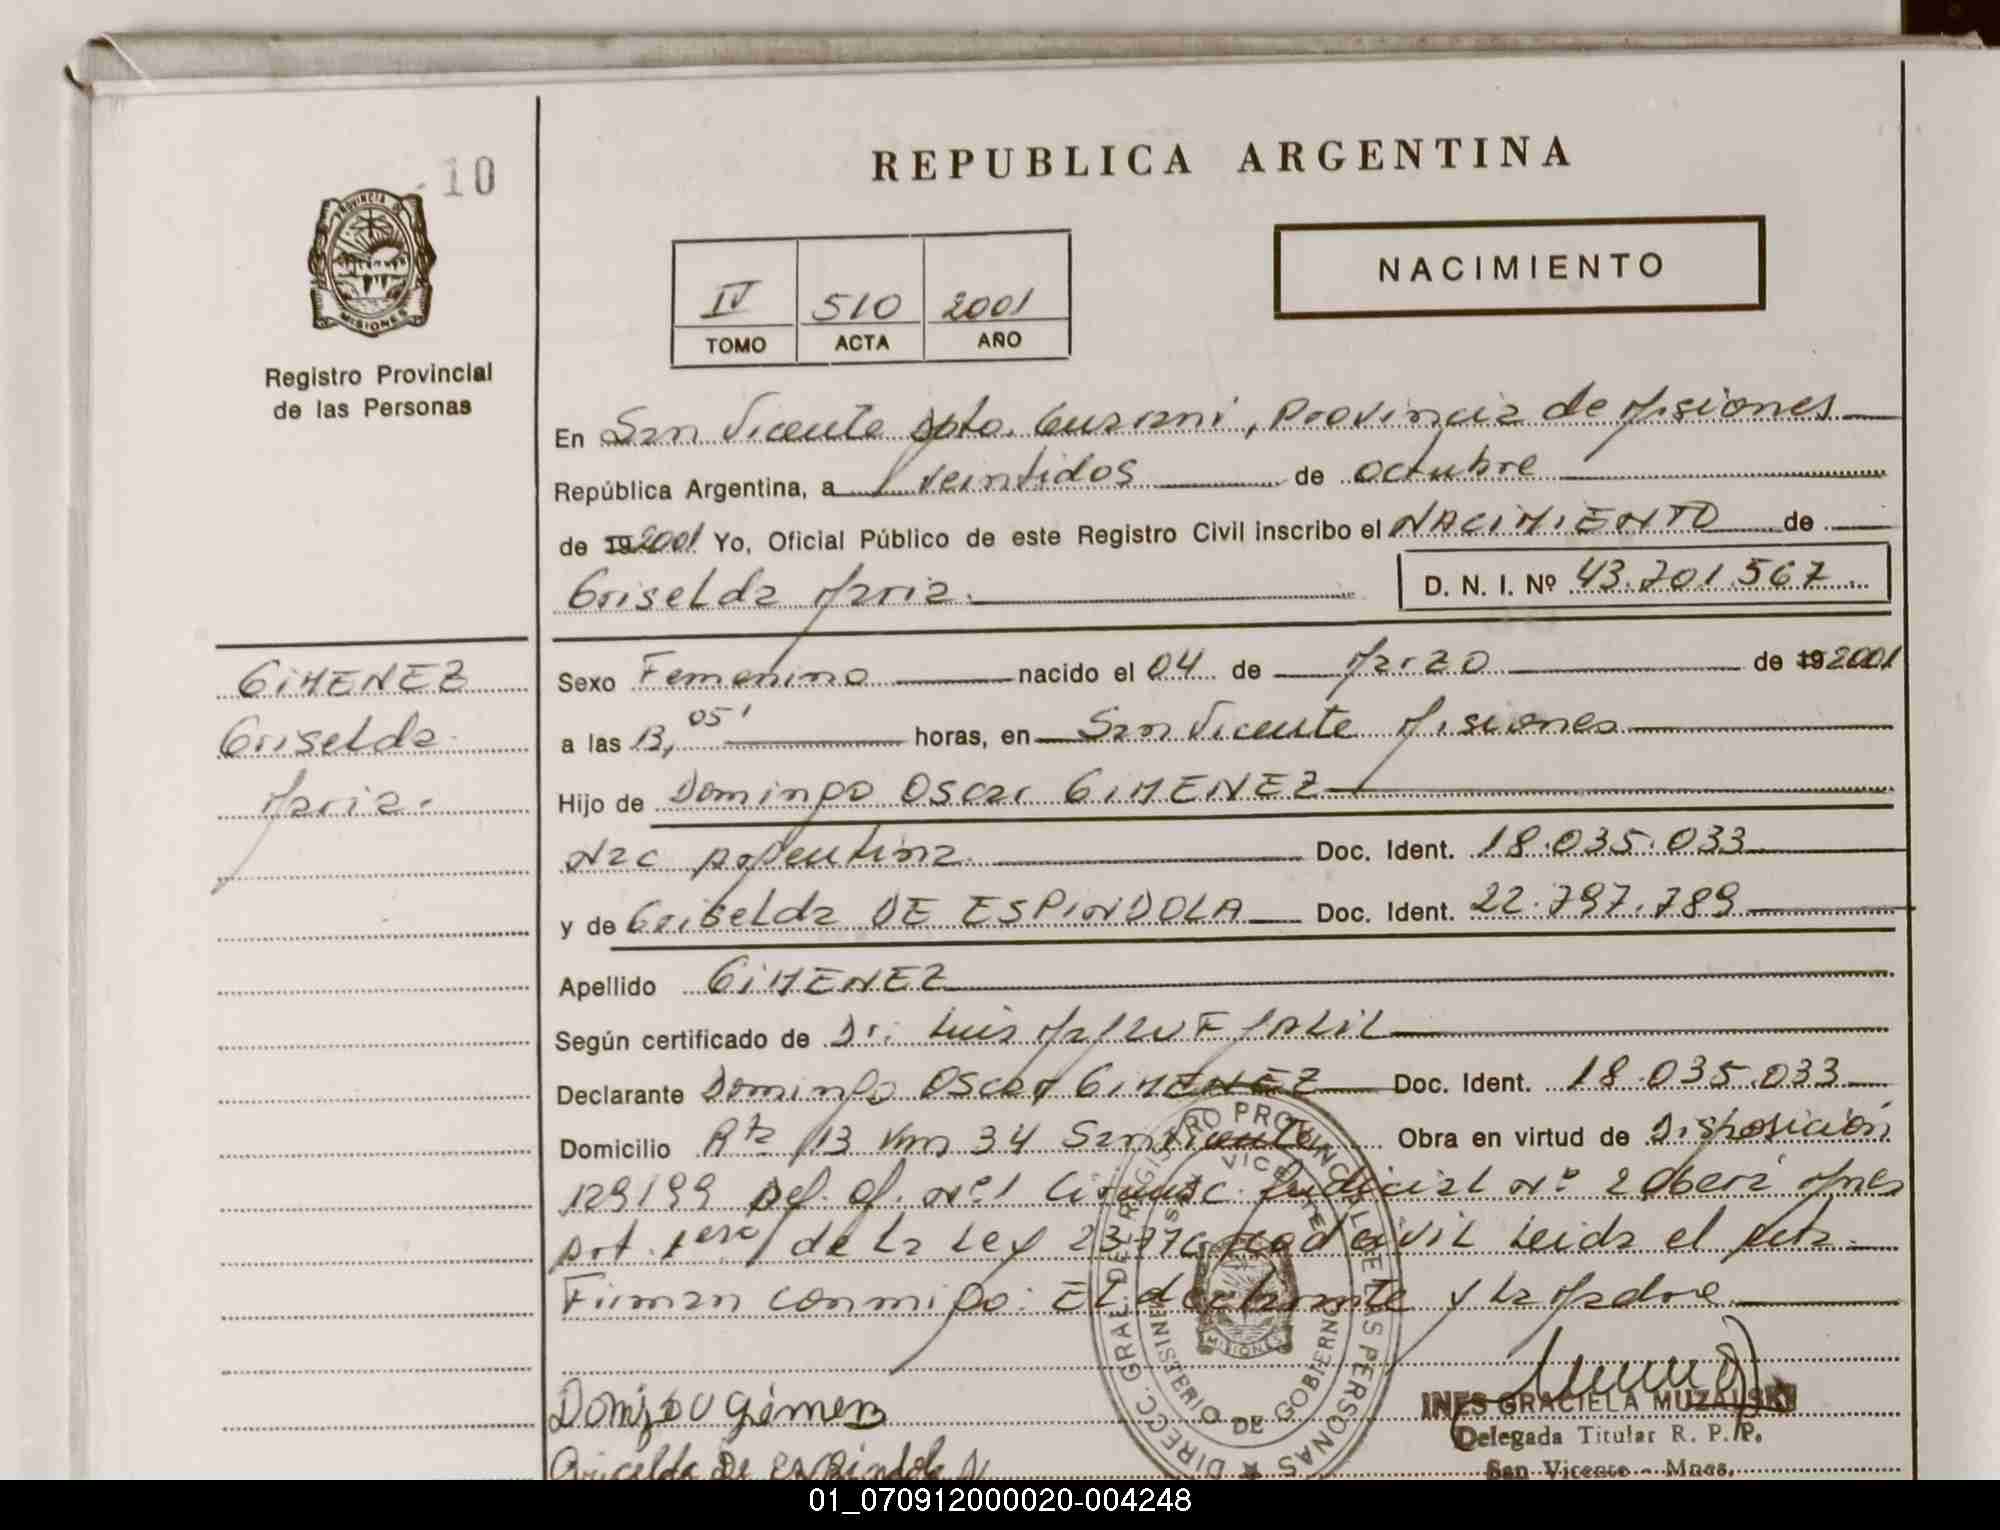 10
PROVINCIA DE
MISIONES
Registro Provincial
de las Personas
REPUBLICA ARGENTINA
IV 510 2001
TOMO ACTA AÑO
NACIMIENTO
En San Vicente Dpto. Guarani, Provincia de Misiones
República Argentina, a veintidos de octubre
de 19 2001 Yo, Oficial Público de este Registro Civil inscribo el NACIMIENTO de
Griselda Maria. D. N. I. Nº 43.701.567
GIMENEZ
Griselda
Maria.
Sexo Femenino nacido el 04 de Marzo de 19 2001
a las 13,05' horas, en San Vicente Misiones
Hijo de Domingo Oscar GIMENEZ
Nac Argentina. Doc. Ident. 18.035.033
y de Griselda DE ESPINDOLA Doc. Ident. 22.797.789
Apellido GIMENEZ
Según certificado de Dr. Luis
Declarante Domingo Oscar GIMENEZ Doc. Ident. 18.035.033
Domicilio Rta 13 Km 34 San Vicente Obra en virtud de Disposición
129/99 Def. Of. Nº1 Circunsc. Judicial Nº 2 Oberá Mnes
Art. 1ero de la Ley Cod Civil Leida el Acta
Firman conmigo: El declarante y la Madre
DIRECC. GRAL. DEL REGISTRO PROVINCIAL DE LAS PERSONAS
SAN VICENTE
MINISTERIO DE GOBIERNO
MISIONES
Gimenez
INES GRACIELA MUZALSKI
Delegada Titular R. P. P.
San Vicente - Mnes.
Griselda De Espindola
01_070912000020-004248